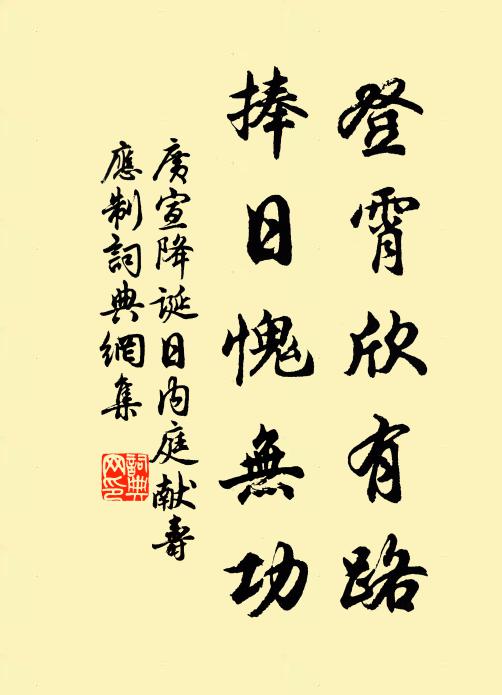 登霄欣有路
捧日愧無功
廣宣降誕日内庭献壽
應制詞典網集
詞典
网印